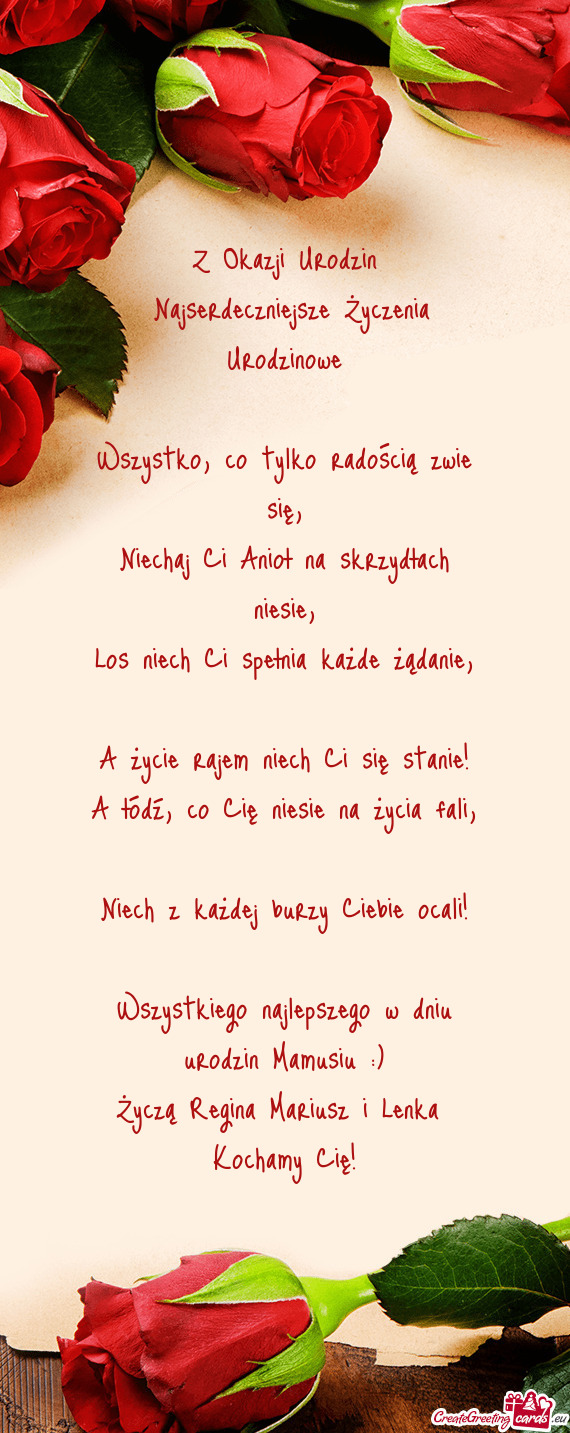 Z Okazji Urodzin
Najserdeczniejsze Życzenia
Urodzinowe
Wszystko, co tylko radością zwie
się,
Niechaj Ci Anioł na skrzydłach
niesie,
Los niech Ci spełnia każde żądanie,
A życie rajem niech Ci się stanie!
A łódź, co Cię niesie na życia fali,
Niech z każdej burzy Ciebie ocali!
Wszystkiego najlepszego w dniu
urodzin Mamusiu :)
Życzą Regina Mariusz i Lenka
Kochamy Cię!
CreateGreeting cards .eu